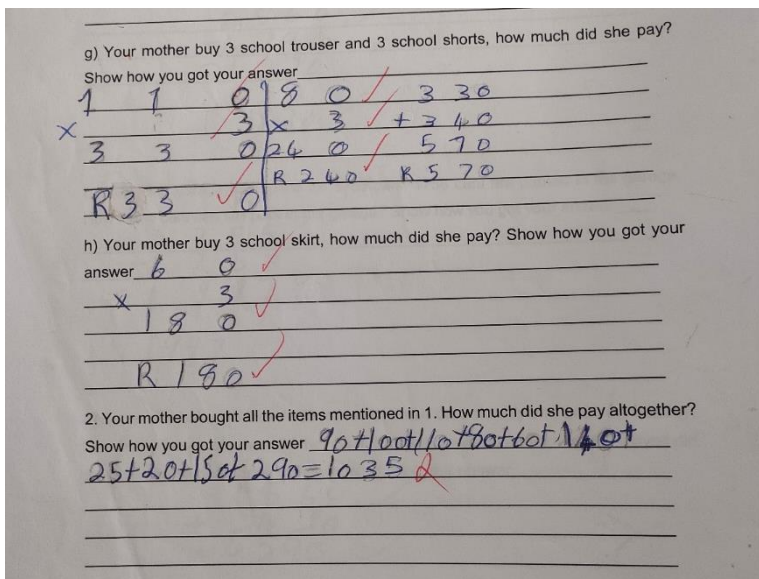 g) Your mother buy 3 school trouser and 3 school shorts, how much did she pay?
Show how you got your answer
1 1 0 | 8 0 3 3 0
x 3 | x 3 + 3 4 0
3 3 0 | 24 0 5 7 0
R 2 4 0 R 5 7 0
R 3 3 0
h) Your mother buy 3 school skirt, how much did she pay? Show how you got your
answer 6 0
x 3
1 8 0
R 1 8 0
2. Your mother bought all the items mentioned in 1. How much did she pay altogether?
Show how you got your answer 90+100+110+80+60+140+
25+20+150+290=1035